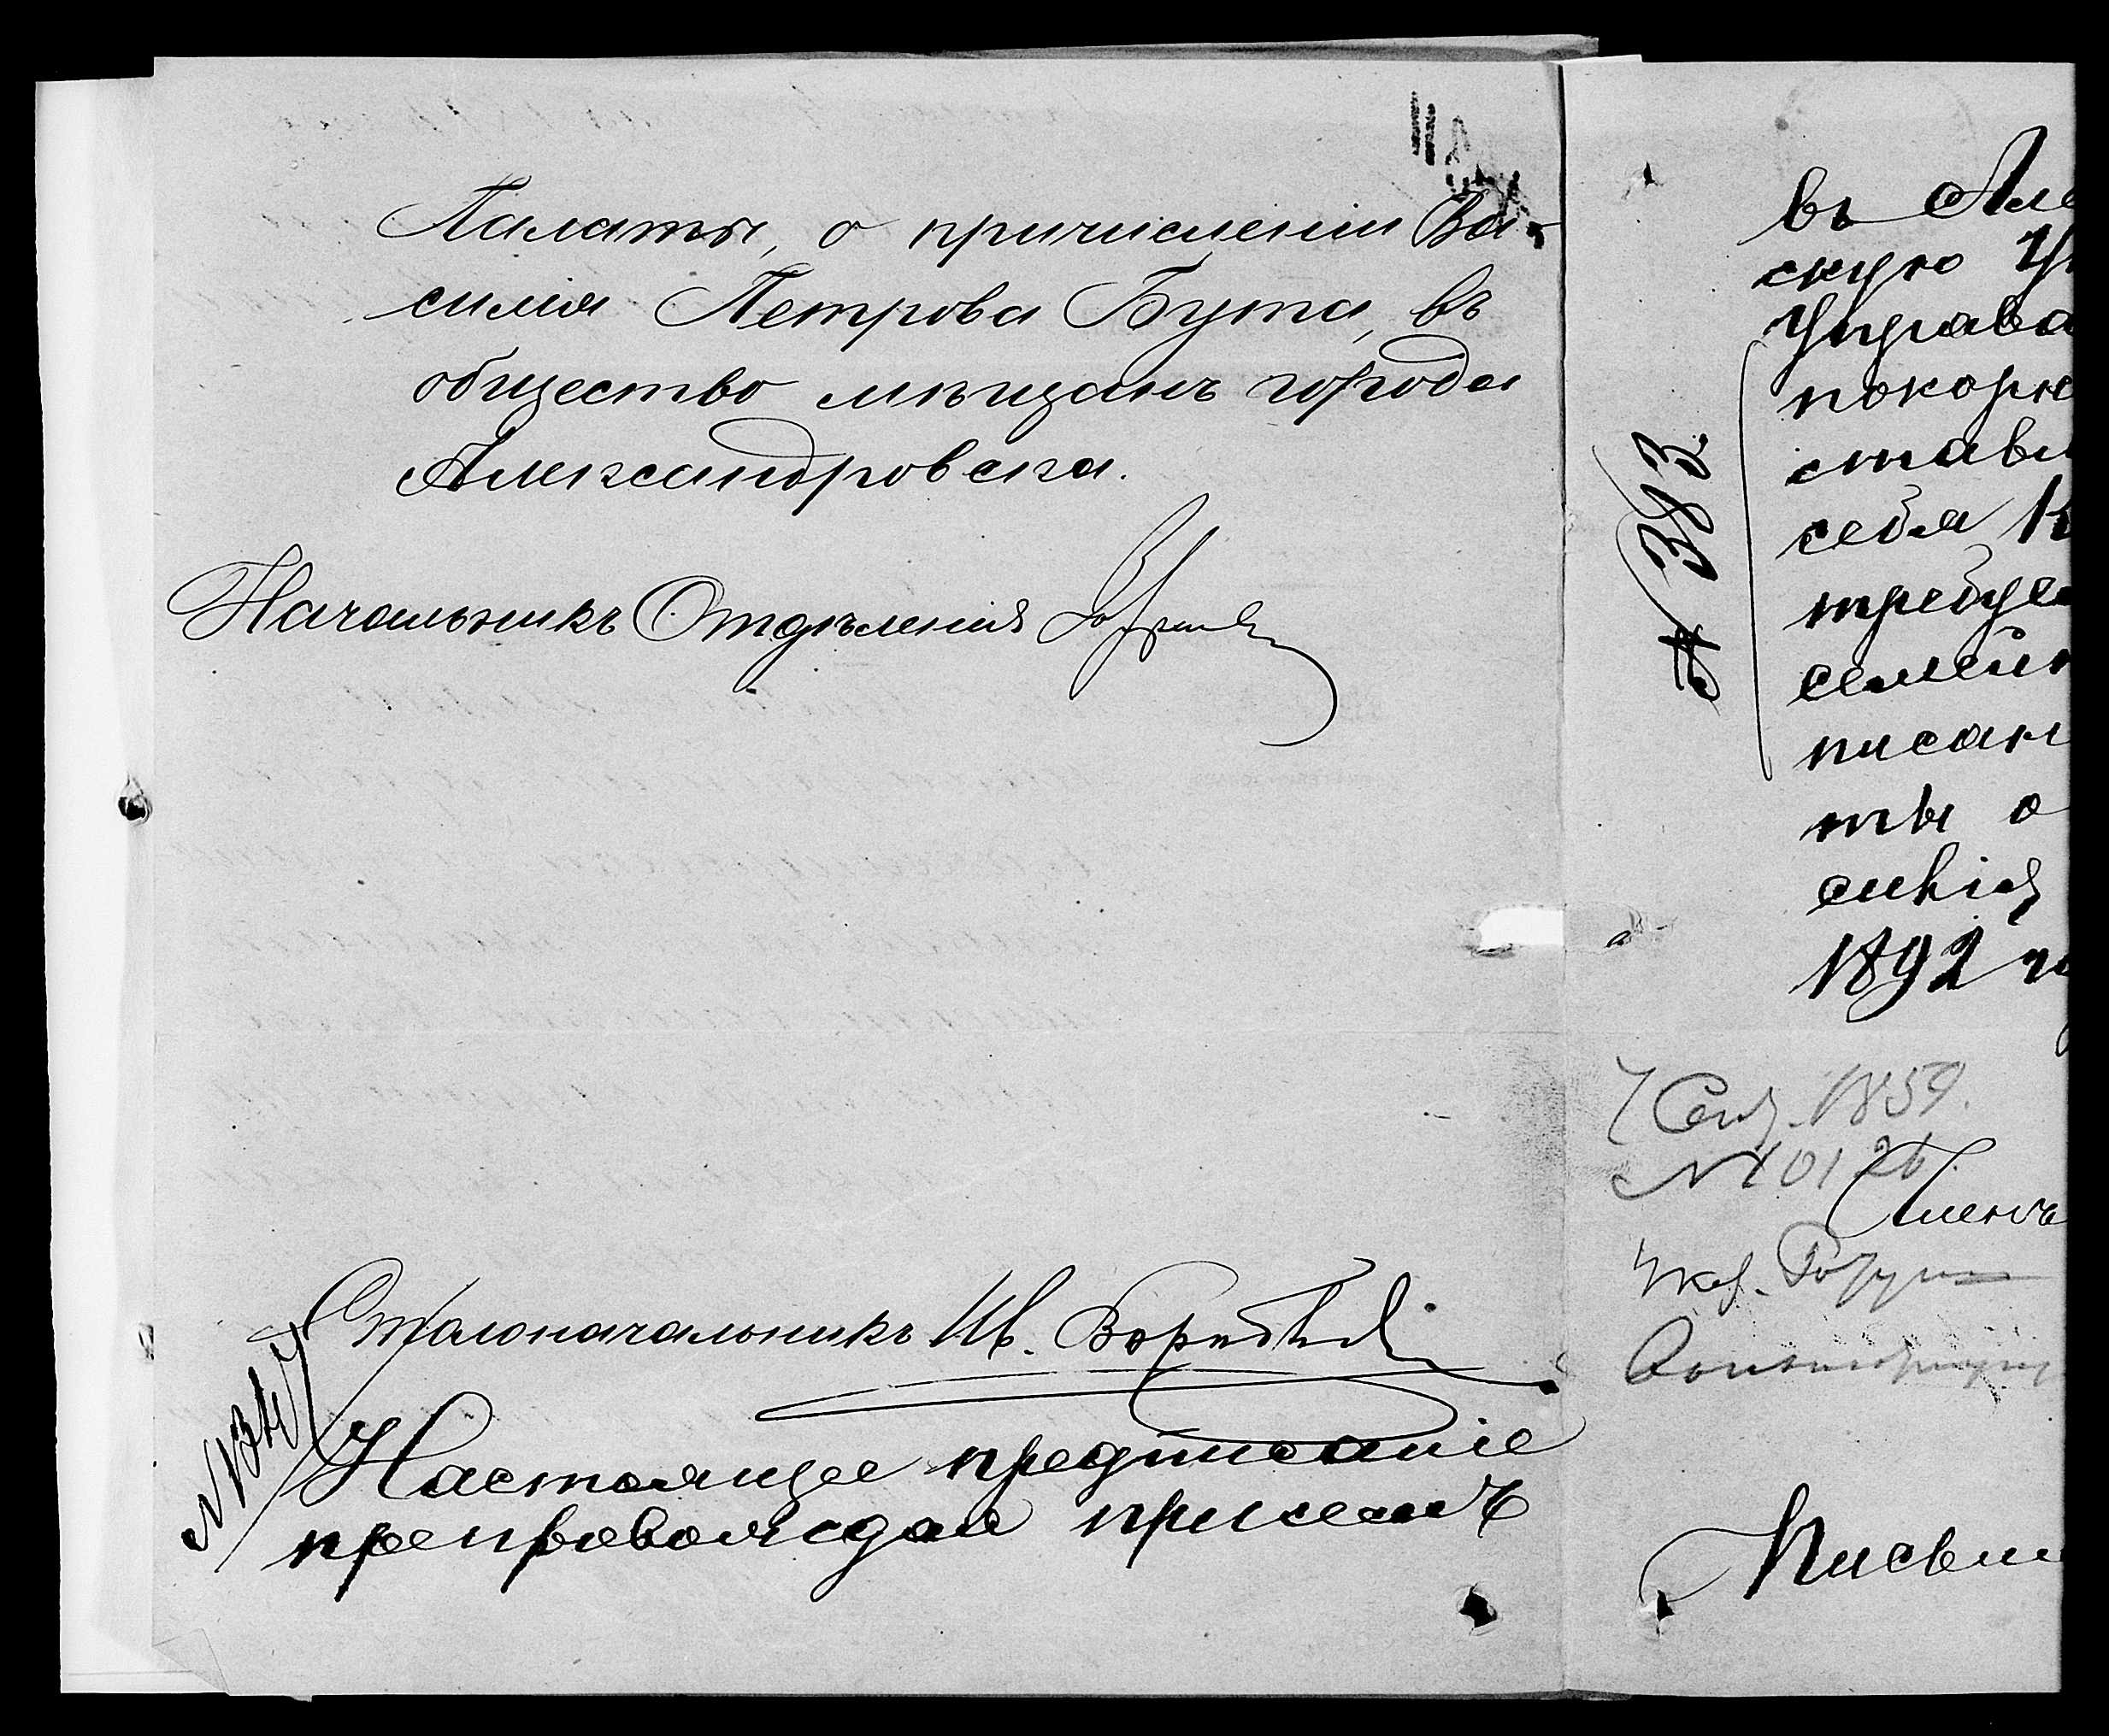 Палаты, о причисленіи Ва-
силія Петрова Бута, въ
общество мѣщанъ города
Александровска.
Начальникъ Отдѣленія
Столоначальникъ Ив.
Настоящее предписаніе
препровождая при семъ
въ Але
скую
Управа
покорн
ставл
себя
требуе
семейн
писан
ты о
1892
7 Сент. 1859.
№ 10126.
Членъ
Письм